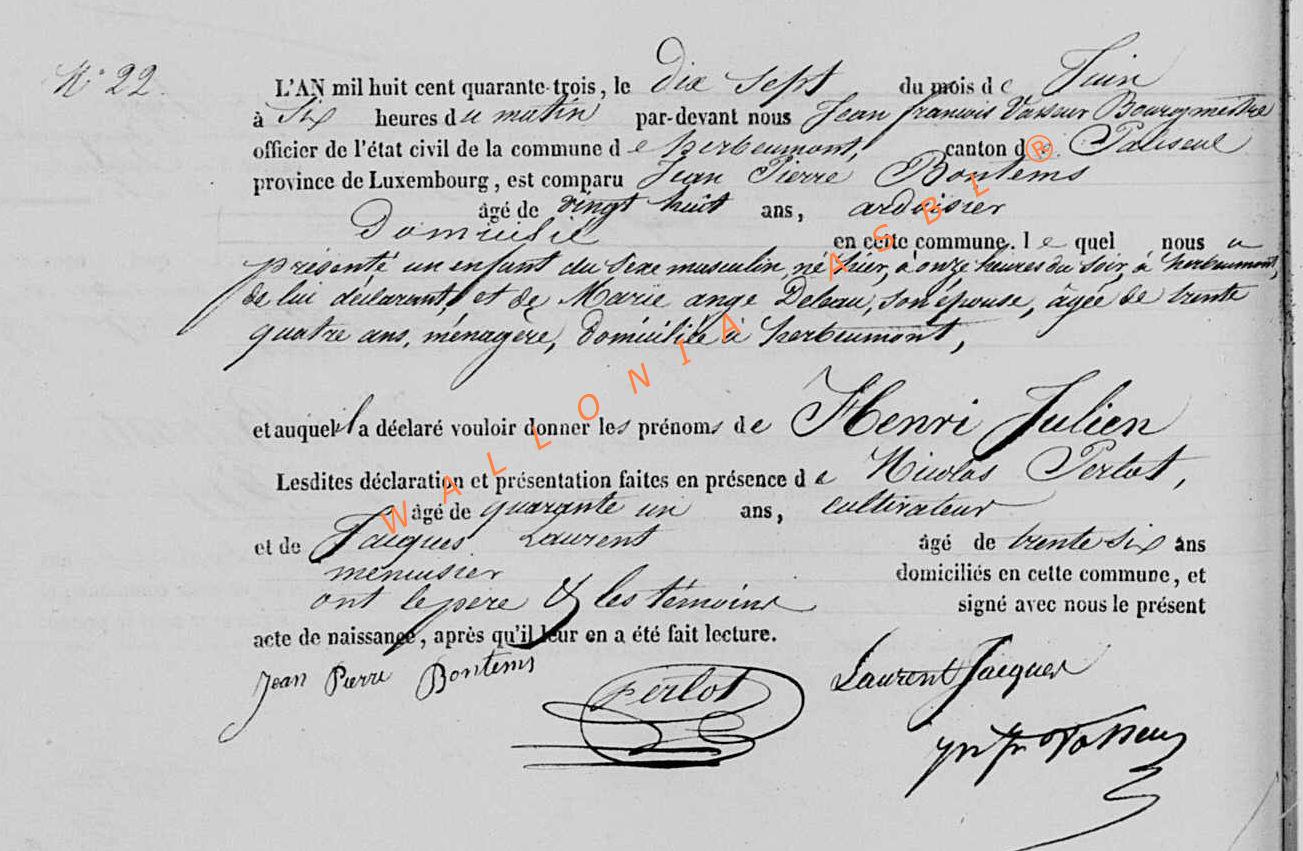 N° 22.
L'AN mil huit cent quarante-trois, le dix sept du mois de Juin
à six heures du matin par-devant nous Jean françois Vasseur Bourgmestre
officier de l'état civil de la commune de herbeumont, canton de Paliseul
province de Luxembourg, est comparu Jean Pierre Bontems
âgé de vingt huit ans, ardoisier
Domicilié en cette commune. lequel nous a
présenté un enfant du sexe masculin, né hier, à onze heures du soir, à herbeumont,
de lui déclarant, et de Marie ange Deleau, son épouse, âgée de trente
quatre ans, ménagère, Domiciliée à herbeumont,
et auquel il a déclaré vouloir donner les prénoms de Henri Julien
Lesdites déclaration et présentation faites en présence de Nicolas Perlot,
âgé de quarante un ans, cultivateur
et de Jacques Laurent âgé de trente six ans
menuisier domiciliés en cette commune, et
ont le père & les témoins signé avec nous le présent
acte de naissance, après qu'il leur en a été fait lecture.
Jean Pierre Bontems perlot Laurent Jacques
WALLONIA ASBL ®